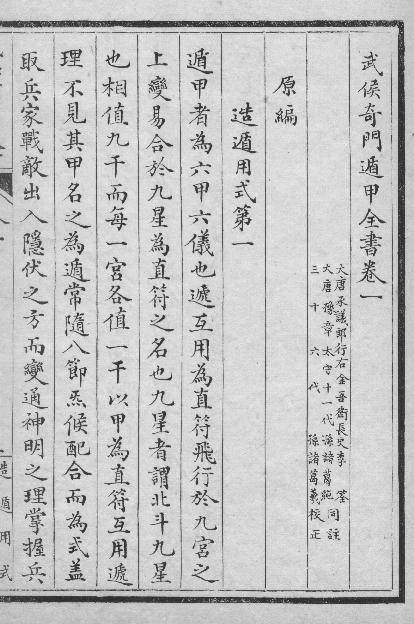 武侯奇門遁甲全書卷一
大唐承議郎行右金吾衛長史李筌
大唐豫章太守十一代孫諸葛 同註
三十六代孫諸葛羲校正
原編
造遁用式第一
遁甲者為六甲六儀也遞互用為直符飛行於九宮之
上變易合於九星為直符之名也九星者謂北斗九星
也相值九干而每一宮各值一干以甲為直符互用遞
理不見其甲名之為遁常隨八節炁候配合而為式蓋
取兵家戰敵出入隱伏之方而變通神明之理掌握兵
造遁用式